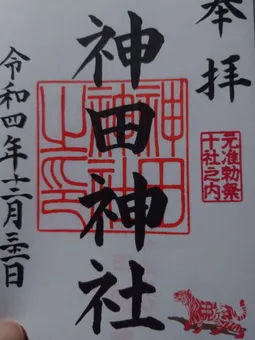 奉拝
神田神社
神田神社之印
元准勅祭
十社之内
令和四年十二月三十一日